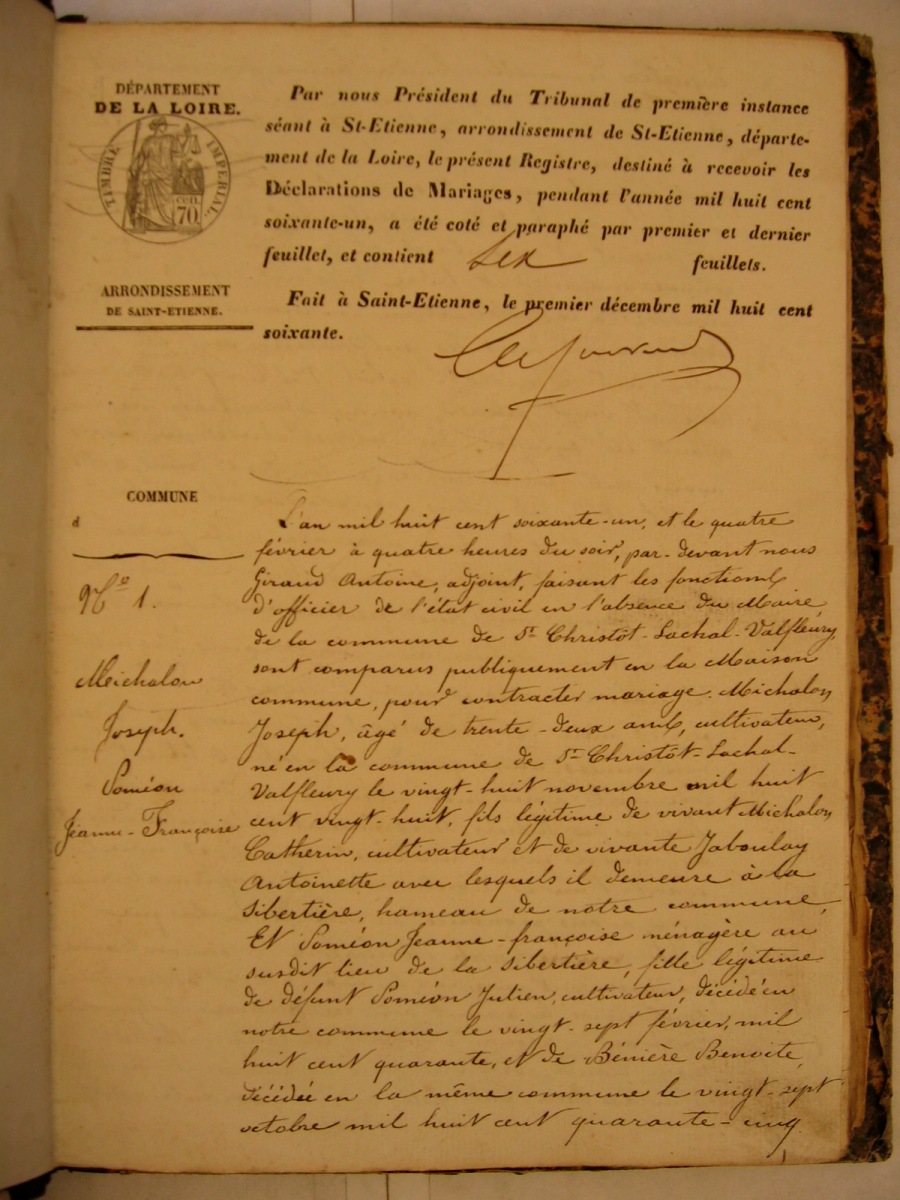 DÉPARTEMENT
DE LA LOIRE.
TIMBRE IMPÉRIAL
CEN.
70
ARRONDISSEMENT
DE SAINT-ETIENNE.
Par nous Président du Tribunal de première instance
séant à St-Etienne, arrondissement de St-Etienne, départe-
ment de la Loire, le présent Registre, destiné à recevoir les
Déclarations de Mariages, pendant l'année mil huit cent
soixante-un, a été coté et paraphé par premier et dernier
feuillet, et contient feuillets.
Fait à Saint-Etienne, le premier décembre mil huit cent
soixante.
COMMUNE
d
No 1.
Michalon
Joseph.
Poméon
Jeanne-Françoise
L'an mil huit cent soixante-un, et le quatre
février à quatre heures du soir, par-devant nous
Giraud Antoine, adjoint, faisant les fonctions
d'officier de l'état civil en l'absence du Maire
de la commune de St Christôt-Lachal-Valfleury
sont comparus publiquement en la Maison
commune, pour contracter mariage. Michalon
Joseph, âgé de trente-deux ans, cultivateur,
né en la commune de St Christôt-Lachal-
Valfleury le vingt-huit novembre mil huit
cent vingt-huit, fils légitime de vivant Michalon
Catherin, cultivateur et de vivante Jaboulay
Antoinette avec lesquels il demeure à la
Sibertière, hameau de notre commune,
Et Poméon Jeanne-françoise ménagère au
susdit lieu de la Sibertière, fille légitime
de défunt Poméon Julien, cultivateur, décédé en
notre commune le vingt-sept février, mil
huit cent quarante, et de Bénière Benoite,
décédée en la même commune le vingt-sept
octobre mil huit cent quarante-cinq